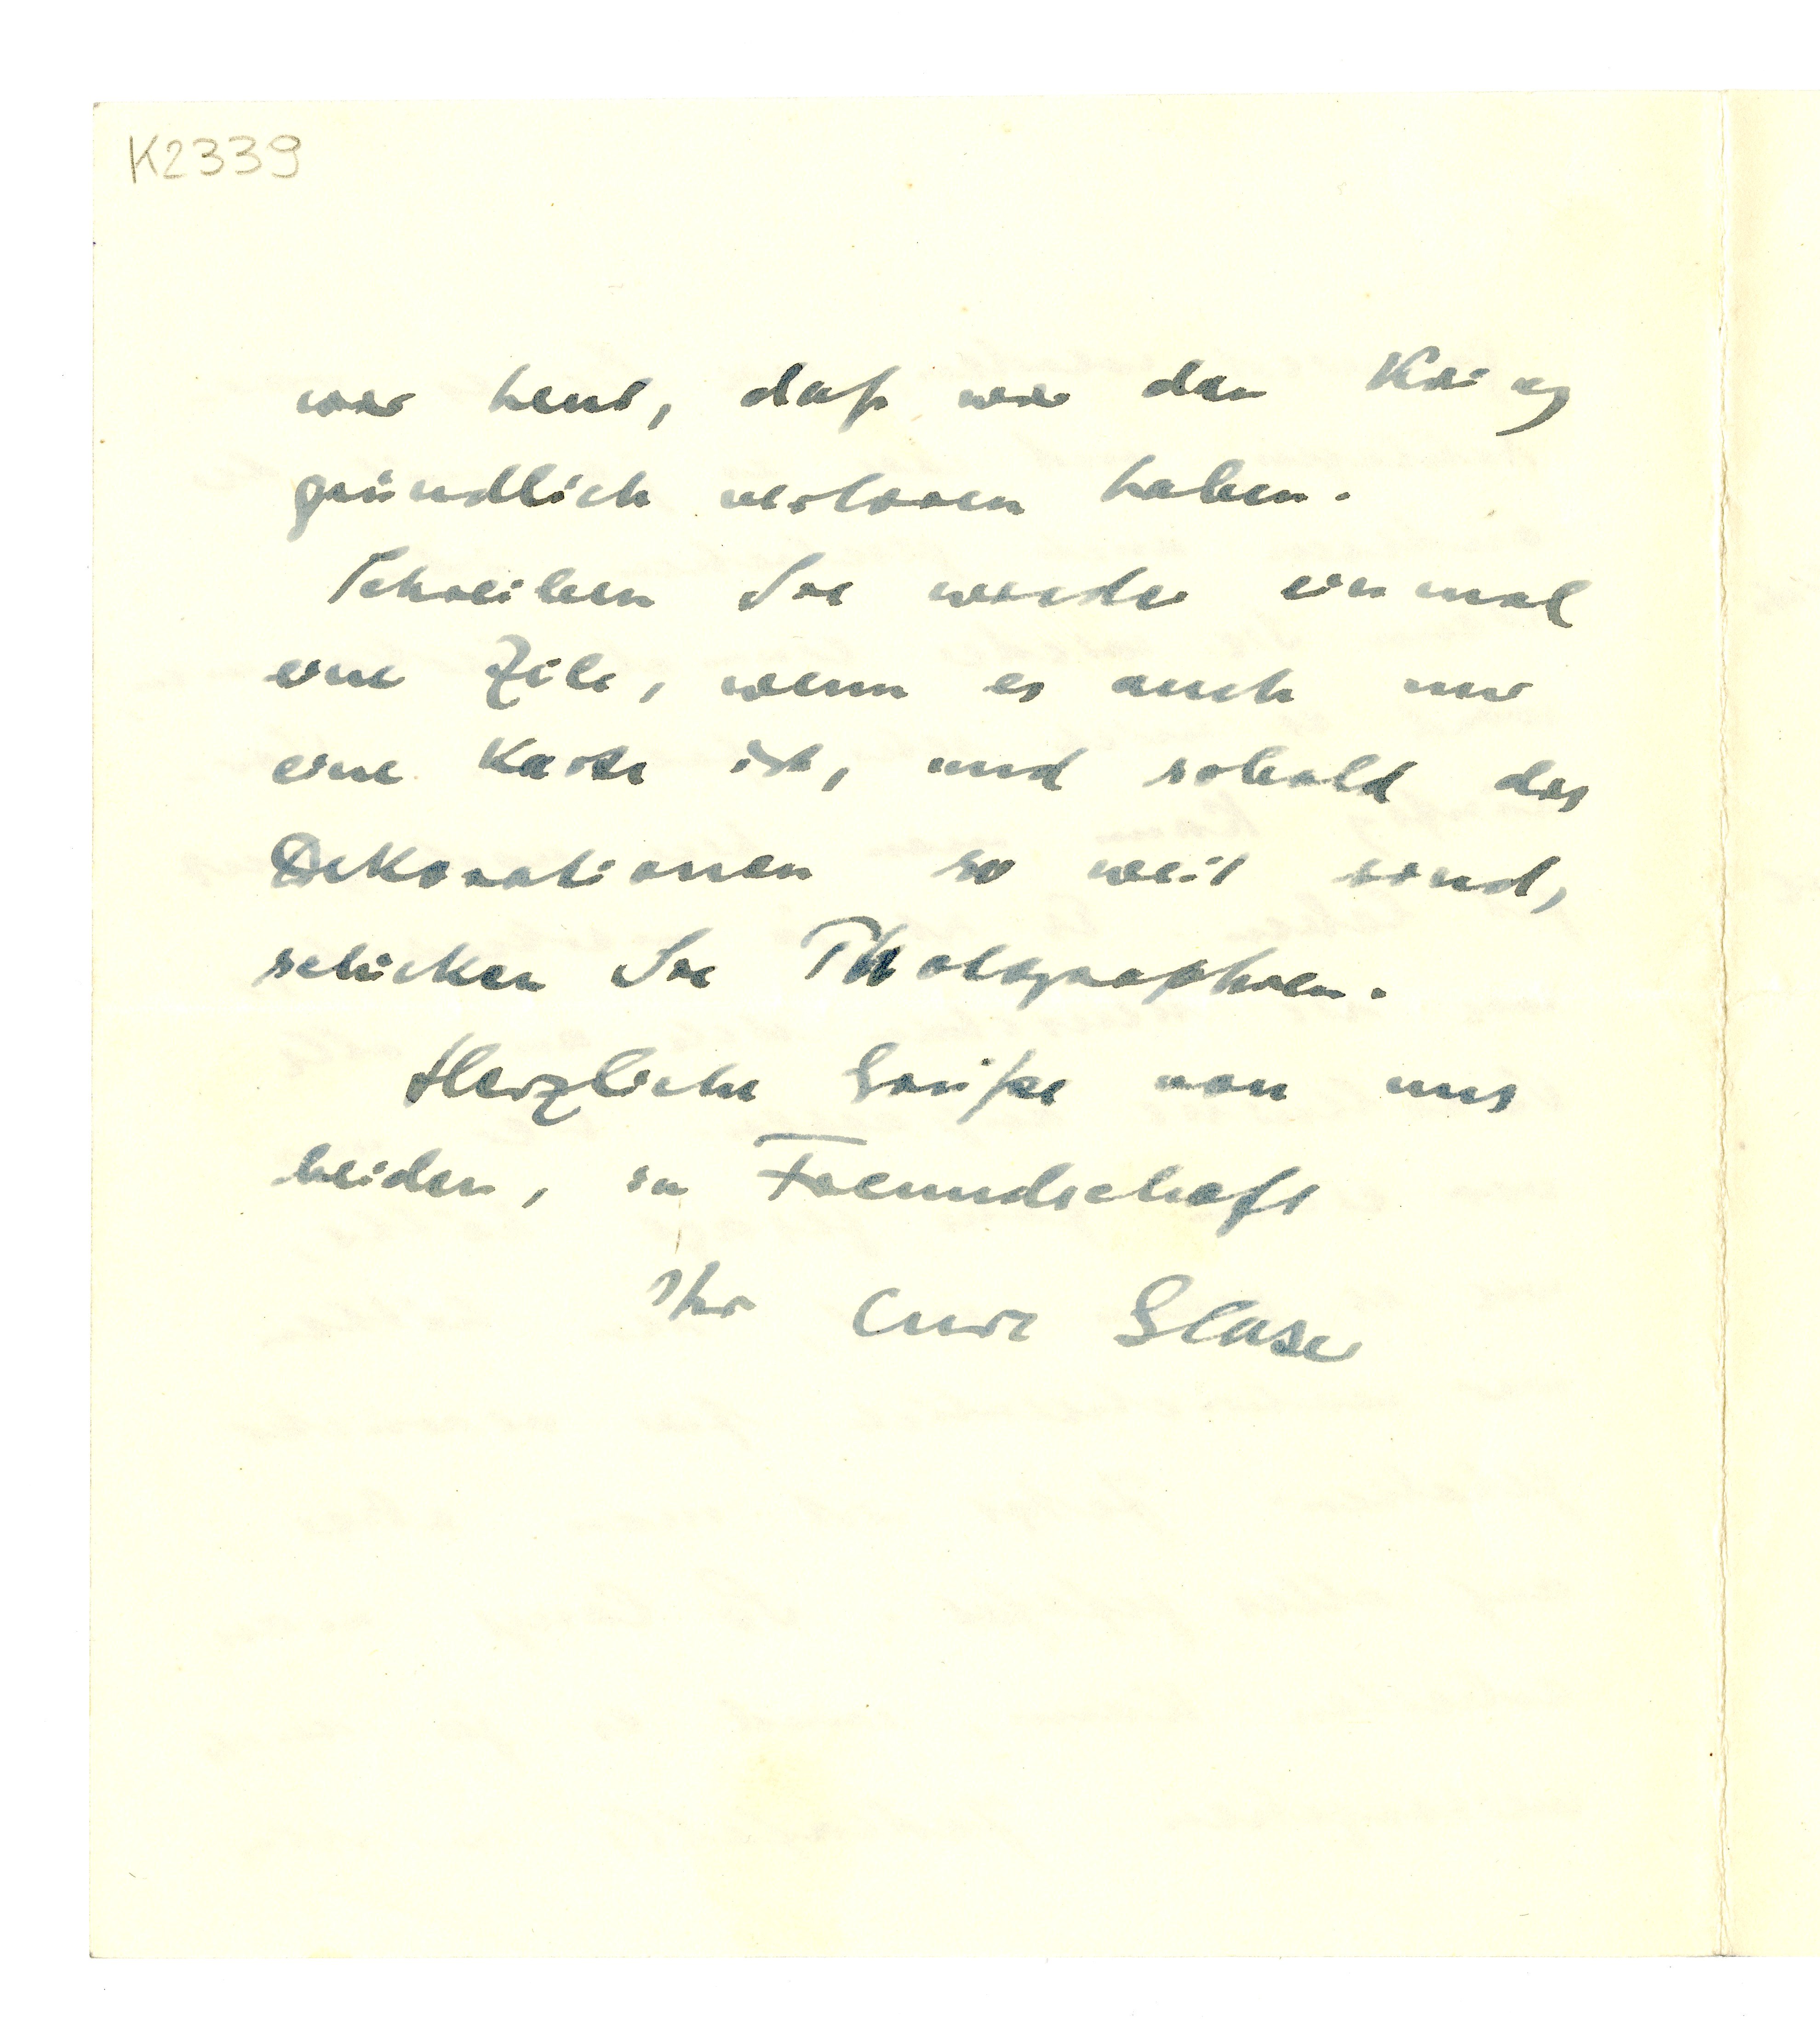 K2339
wir heut, daß wir den Krieg
gründlich verloren haben.
Schreiben Sie wieder einmal
eine Zeile, wenn es auch nur
eine Karte ist, und sobald die
Dekorationen so weit sind,
schicken Sie Photographien.
Herzliche Grüße von uns
beiden, in Freundschaft
Ihr Curt Glaser